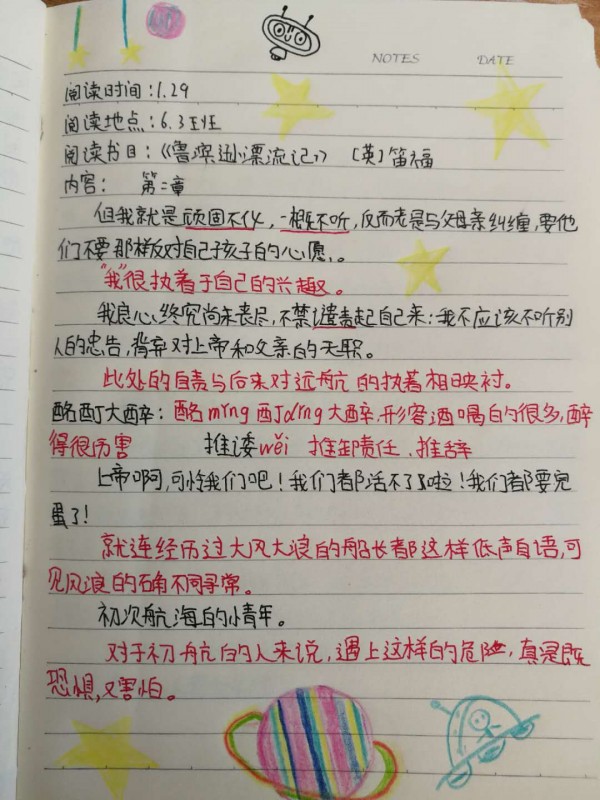 NOTES DATE
阅读时间:1.29
阅读地点:6.3班班
阅读书目:《鲁滨逊漂流记》 [英]笛福
内容: 第二章
但我就是顽固不化,一概不听,反而老是与父母亲纠缠,要他
们不要那样反对自己孩子的心愿。
"我"很执着于自己的兴趣。
我良心终究尚未丧尽,不禁谴责起自己来:我不应该不听别
人的忠告,背弃对上帝和父亲的天职。
此处的自责与后来对远航的执着相映衬。
酩酊大醉:酩mǐng酊dǐng大醉,形容酒喝的很多,醉
得很厉害 推诿wěi 推卸责任、推辞
上帝啊,可怜我们吧!我们都活不了啦!我们都要完
蛋了!
就连经历过大风大浪的船长都这样低声自语,可
见风浪的确不同寻常。
初次航海的青年。
对于初航的人来说,遇上这样的危险,真是既
恐惧,又害怕。